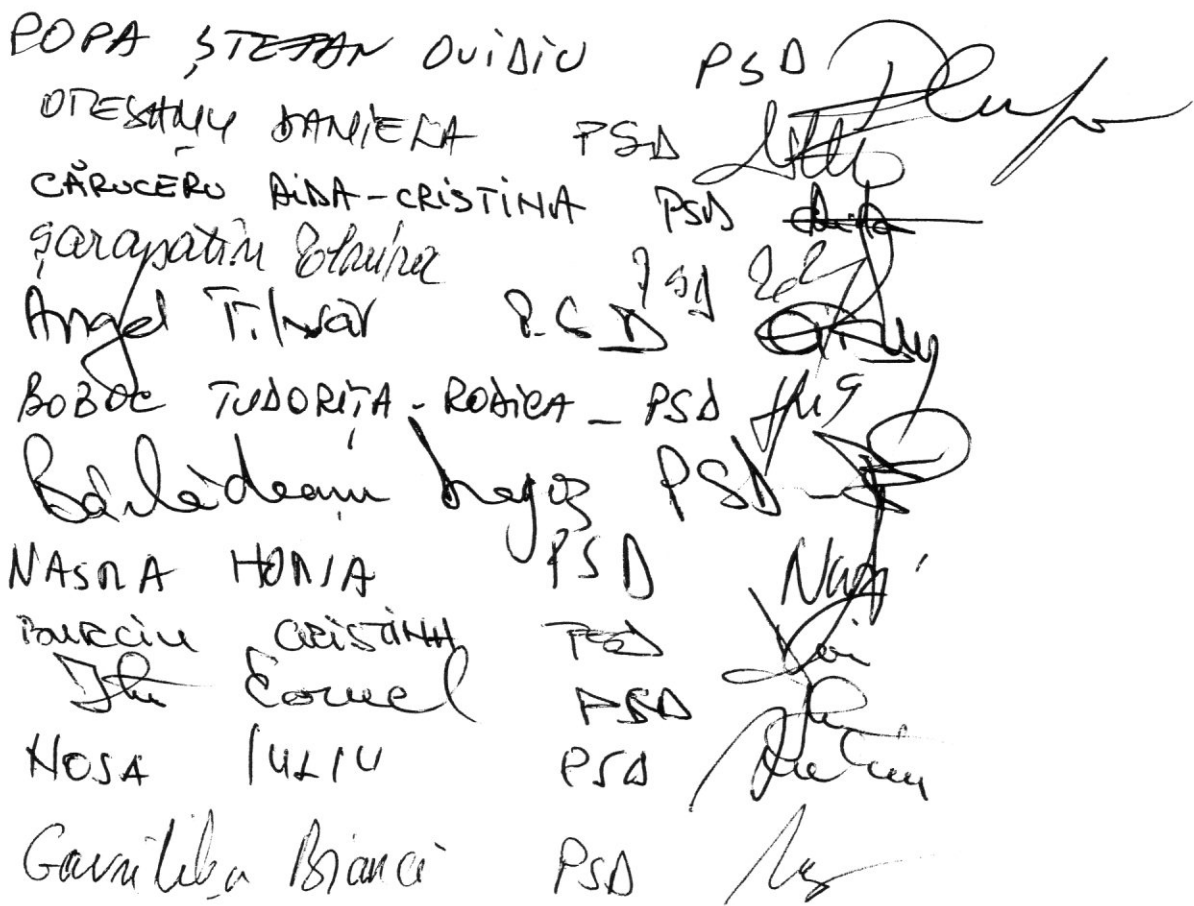 POPA ȘTEFAN OVIDIU PSD
OTEȘANU DANIELA PSD
CĂRUCERU AIDA-CRISTINA PSD
Șarapatin Elvira PSD
Angel Tîlvăr PSD
BOBOC TUDORIȚA-RODICA_PSD
Bârlădeanu PSD
NASRA HORIA PSD
CRISTINA PSD
Itu Cornel PSD
NOSA IULIU PSD
Gavrilița Bianca PSD